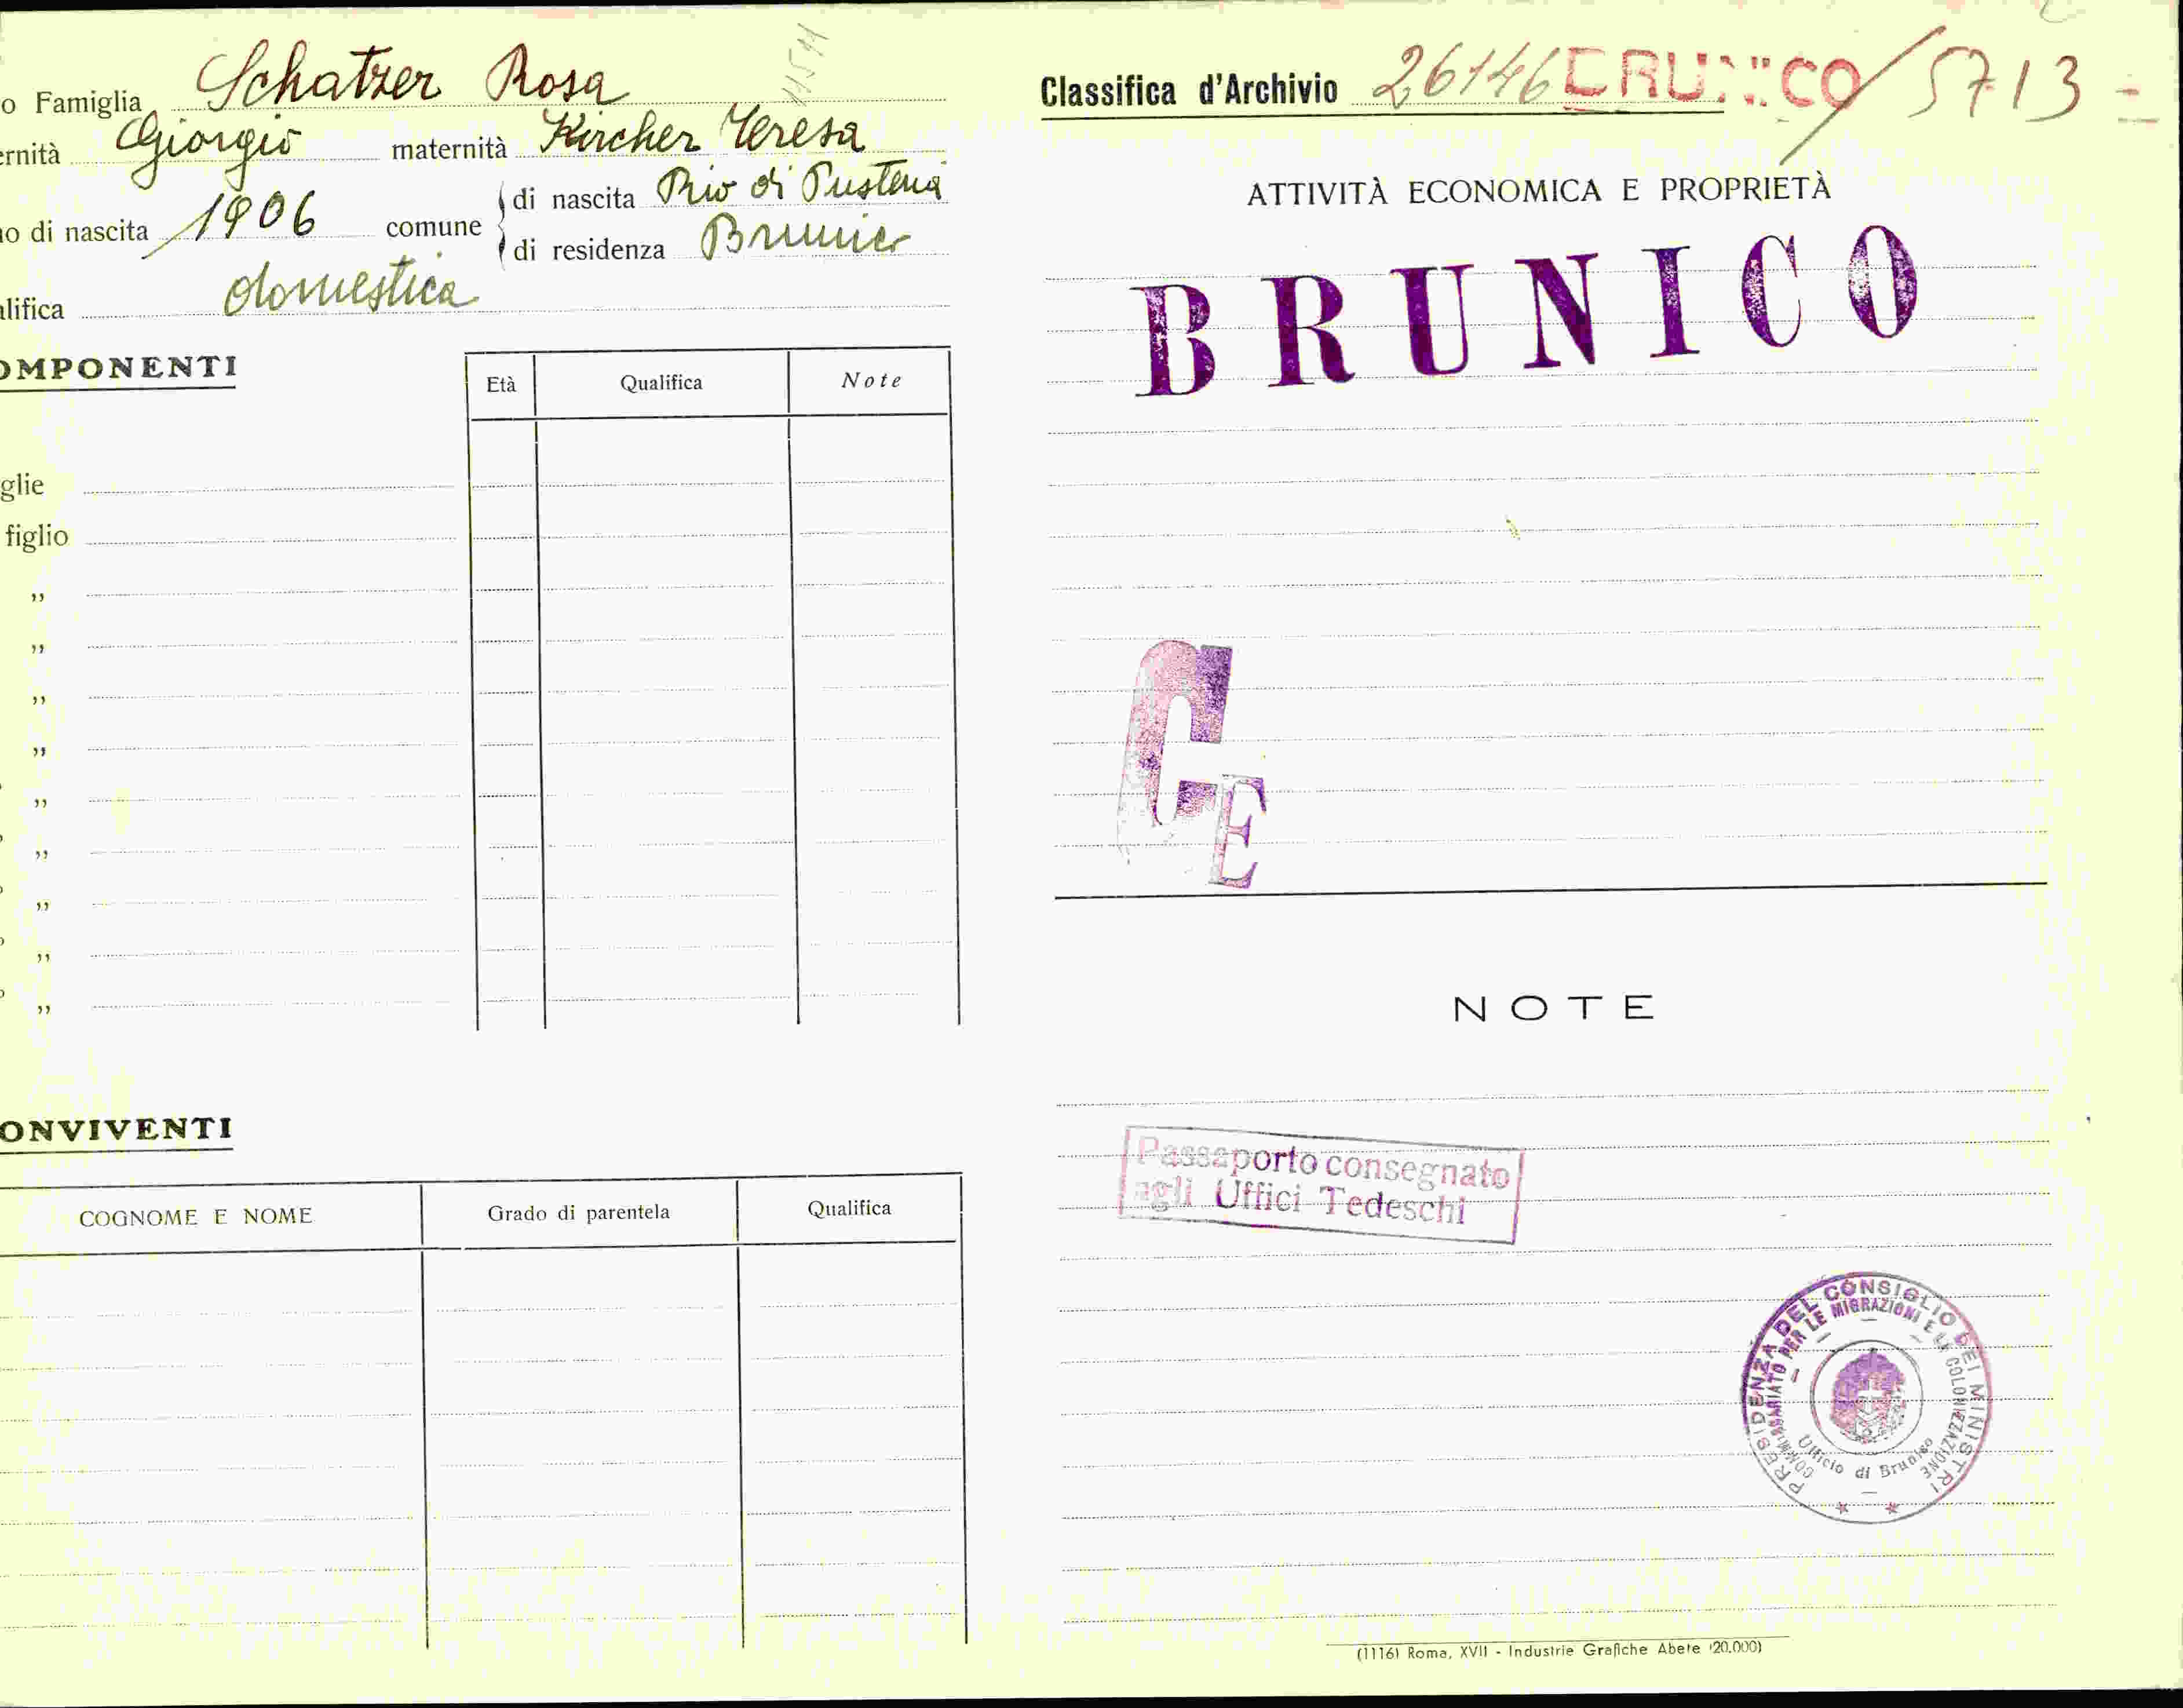 o Famiglia Schatzer Rosa
ernità Giorgio maternità Kircher Teresa
o di nascita 1906 comune di nascita Rio di Pusteria
di residenza Brunico
alifica domestica
OMPONENTI
Età Qualifica Note
glie
figlio
„
„
„
„
„
„
„
„
„
ONVIVENTI
COGNOME E NOME Grado di parentela Qualifica
Classifica d'Archivio 26146 BRUNICO / 5713 =
ATTIVITÀ ECONOMICA E PROPRIETÀ
BRUNICO
C
E
NOTE
Passaporto consegnato
agli Uffici Tedeschi
PRESIDENZA DEL CONSIGLIO DEI MINISTRI
COMMISSARIATO PER LE MIGRAZIONI E LA COLONIZZAZIONE
Ufficio di Brunico
(1116) Roma, XVII - Industrie Grafiche Abete (20.000)